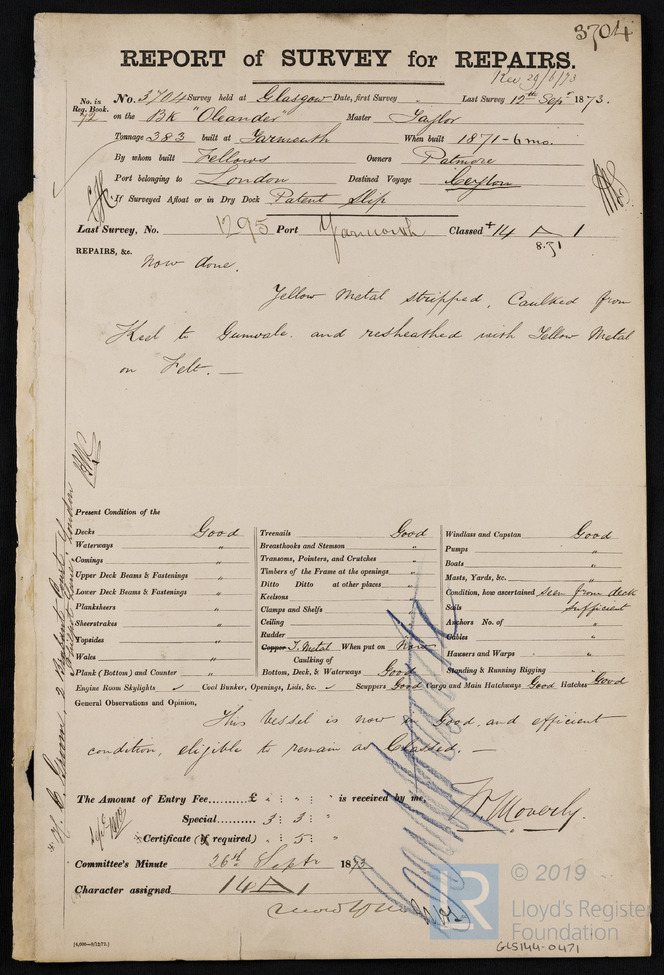 3704
REPORT of SURVEY for REPAIRS.
Rec 29/6/73
No. in Reg. Book. 72
No. 3704 Survey held at Glasgow Date, first Survey " Last Survey 12th Sept 1873.
on the Bk "Oleander" Master Taylor
Tonnage 383 built at Yarmouth When built 1871-6mo.
By whom built Fellows Owners Patmore
Port belonging to London Destined Voyage Ceylon
If Surveyed Afloat or in Dry Dock Patent Slip
Last Survey, No. 1295 Port Yarmouth Classed + 14 A 1
8.71
REPAIRS, &c.
Now done.
Yellow Metal stripped, Caulked from
Keel to Gunwale and resheathed with Yellow Metal
on Felt. —
Present Condition of the
Decks Good
Waterways "
Comings "
Upper Deck Beams & Fastenings "
Lower Deck Beams & Fastenings "
Planksheers "
Sheerstrakes "
Topsides "
Wales "
Plank (Bottom) and Counter "
Treenails Good
Breasthooks and Stemson "
Transoms, Pointers, and Crutches "
Timbers of the Frame at the openings "
Ditto Ditto at other places "
Keelsons "
Clamps and Shelfs "
Ceiling "
Rudder "
Copper Y. Metal When put on Now
Caulking of
Bottom, Deck, & Waterways Good
Windlass and Capstan Good
Pumps "
Boats "
Masts, Yards, &c. "
Condition, how ascertained seen from deck
Sails sufficient
Anchors No. of "
Cables "
Hawsers and Warps "
Standing & Running Rigging "
Engine Room Skylights ✓ Coal Bunker, Openings, Lids, &c. ✓ Scuppers Good Cargo and Main Hatchways Good Hatches Good
General Observations and Opinion,
This Vessel is now in Good, and efficient
condition, eligible to remain as Classed. —
The Amount of Entry Fee.......... £ " : " : " is received by me,
Special.......... 3 : 3 : "
Certificate (if required) " : 5 : "
W. Moverly.
Committee's Minute 26th Septr 1873
Character assigned 14 A 1
[4,000—9/12/72.]
© 2019
Lloyd's Register
Foundation
GLS144-0471